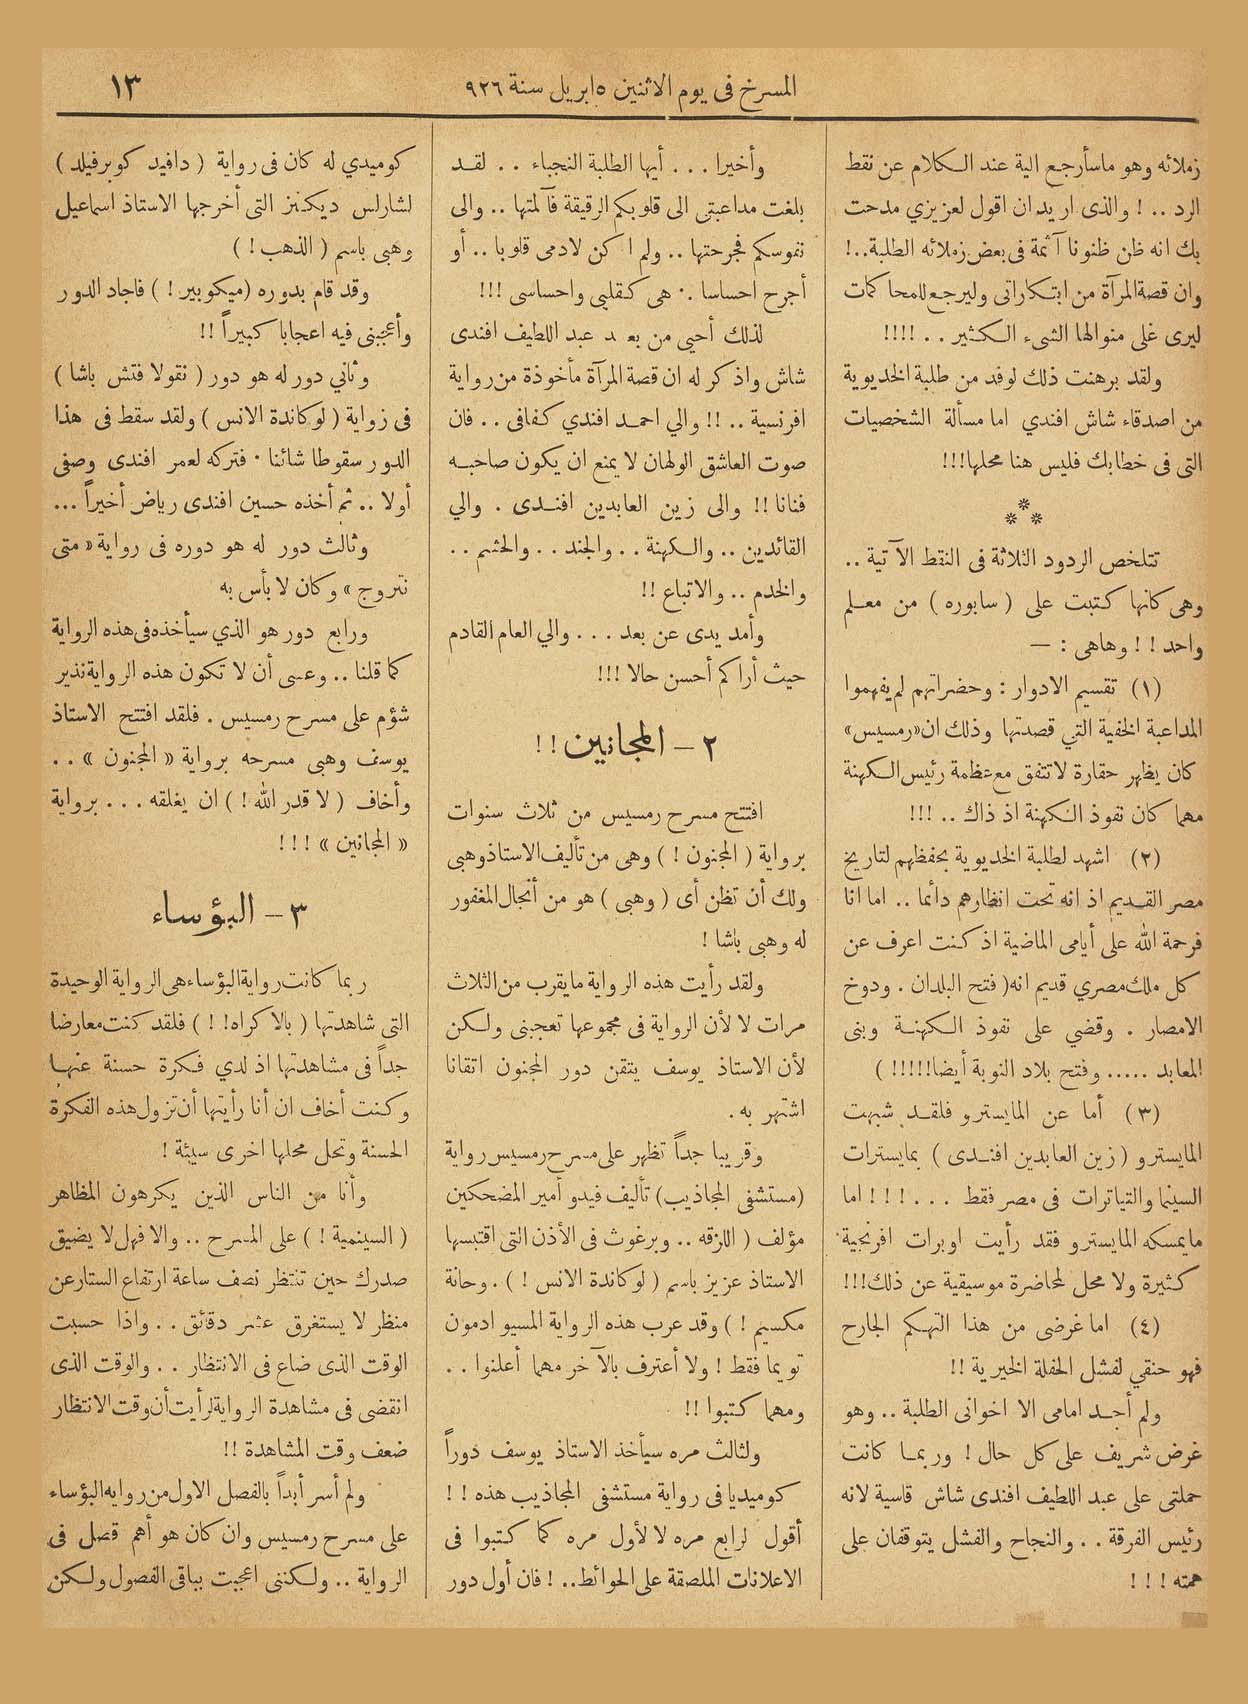 المسرح فى يوم الاثنين ٥ ابريل سنة ٩٢٦
١٣
زملائه وهو ماسأرجع الية عند الكلام عن نقط
الرد .. ! والذى اريد ان اقول لعزيزي مدحت
بك انه ظن ظنونا آثمة فى بعض زملائه الطلبة..!
وان قصة المرآة من ابتكاراتى وليرجع للمحاكمات
ليرى على منوالها الشىء الكثير .. !!!!
ولقد برهنت ذلك لوفد من طلبة الخديوية
من اصدقاء شاش افندي اما مسألة الشخصيات
التى فى خطابك فليس هنا محلها!!!
***
تتلخص الردود الثلاثة فى النقط الآتية ..
وهى كانها كتبت على ( سابوره ) من معلم
واحد ! ! وهاهى : —
(١) تقسيم الادوار : وحضراتهم لم يفهموا
المداعبة الخفية التي قصدتها وذلك ان «رمسيس»
كان يظهر حقارة لا تتفق مع عظمة رئيس الكهنة
مهما كان نفوذ الكهنة اذ ذاك .. !!!
(٢) اشهد لطلبة الخديوية بحفظهم لتاريخ
مصر القديم اذ انه تحت انظارهم دائما .. اما انا
فرحمة الله على أيامى الماضية اذ كنت اعرف عن
كل ملك مصري قديم انه( فتح البلدان . ودوخ
الامصار . وقضي على نفوذ الكهنة وبنى
المعابد ..... وفتح بلاد النوبة أيضا!!!!! )
(٣) أما عن المايسترو فلقد شبهت
المايسترو ( زين العابدين افندى ) بمايسترات
السينما والتياترات فى مصر فقط ...!!! اما
مايمسكه المايسترو فقد رأيت اوبرات افرنجية
كثيرة ولا محل لمحاضرة موسيقية عن ذلك!!!
(٤) اما غرضى من هذا التهكم الجارح
فهو حنقي لفشل الحفلة الخيرية !!
ولم أجد امامى الا اخوانى الطلبة .. وهو
غرض شريف على كل حال ! وربما كانت
حملتى على عبد اللطيف افندى شاش قاسية لانه
رئيس الفرقة .. والنجاح والفشل يتوقفان على
همته ! ! !
وأخيرا ... أيها الطلبة النجباء .. لقد
بلغت مداعبتى الى قلوبكم الرقيقة فآلمتها .. والى
نفوسكم فجرحتها .. ولم اكن لادمى قلوبا .. أو
أجرح احساسا . هى كقلبى واحساسى !!!
لذلك أحيى من بعد عبد اللطيف افندى
شاش واذكر له ان قصة المرآة مأخوذة من رواية
افرنسية .. !! والي احمد افندي كفافى .. فان
صوت العاشق الولهان لا يمنع ان يكون صاحبه
فنانا !! والى زين العابدين افندى . والي
القائدين .. والكهنة .. والجند .. والحشم ..
والخدم .. والاتباع !!
وأمد يدى عن بعد ... والي العام القادم
حيث أراكم أحسن حالا !!!
٢ – المجانين !!
افتتح مسرح رمسيس من ثلاث سنوات
برواية ( المجنون ! ) وهى من تأليف الاستاذ وهبى
ولك أن تظن أى ( وهبى ) هو من أنجال المغفور
له وهبى باشا !
ولقد رأيت هذه الرواية مايقرب من الثلاث
مرات لا لأن الرواية فى مجموعها تعجبنى ولكن
لأن الاستاذ يوسف يتقن دور المجنون اتقانا
اشتهر به .
وقريبا جداً تظهر على مسرح رمسيس رواية
(مستشفى المجاذيب) تأليف فيدو أمير المضحكين
مؤلف ( اللزقه .. وبرغوث فى الأذن التى اقتبسها
الاستاذ عزيز باسم ( لوكاندة الانس ! ) . وحانة
مكسيم ! ) وقد عرب هذه الرواية المسيو ادمون
تويما فقط ! ولا أعترف بالآخر مهما أعلنوا ..
ومهما كتبوا !!
ولثالث مره سيأخذ الاستاذ يوسف دوراً
كوميديا فى رواية مستشفى المجاذيب هذه ! !
أقول لرابع مره لا لأول مره كما كتبوا فى
الاعلانات الملصقة على الحوائط..! فان أول دور
كوميدي له كان فى رواية ( دافيد كوبرفيلد )
لشارلس ديكنز التى أخرجها الاستاذ اسماعيل
وهبى باسم ( الذهب ! )
وقد قام بدوره (ميكوبير ! ) فاجاد الدور
وأعجبنى فيه اعجابا كبيراً !!
وثاني دور له هو دور ( نقولا فتش باشا )
فى زواية ( لوكاندة الانس ) ولقد سقط فى هذا
الدور سقوطا شائنا . فتركه لعمر افندى وصفى
أولا .. ثم أخذه حسين افندى رياض أخيراً ...
وثالث دور له هو دوره فى رواية « متى
نتزوج » وكان لا بأس به
ورابع دور هو الذي سيأخذه فى هذه الرواية
كما قلنا .. وعسى أن لا تكون هذه الرواية نذير
شؤم على مسرح رمسيس . فلقد افتتح الاستاذ
يوسف وهبى مسرحه برواية « المجنون » ..
وأخاف ( لا قدر الله ! ) ان يغلقه ... برواية
« المجانين » ! ! !
٣ – البؤساء
ربما كانت رواية البؤساء هى الرواية الوحيدة
التى شاهدتها ( بالاكراه! ! ) فلقد كنت معارضا
جداً فى مشاهدتها اذ لدي فكرة حسنة عنها
وكنت أخاف ان أنا رأيتها أن تزول هذه الفكرة
الحسنة وتحل محلها اخرى سيئة !
وأنا من الناس الذين يكرهون المظاهر
( السينمية ! ) على المسرح .. والا فهل لا يضيق
صدرك حين تنتظر نصف ساعة ارتفاع الستار عن
منظر لا يستغرق عشر دقائق .. واذا حسبت
الوقت الذى ضاع فى الانتظار .. والوقت الذى
انقضى فى مشاهدة الرواية لرأيت أن وقت الانتظار
ضعف وقت المشاهدة !!
ولم أسر أبداً بالفصل الاول من روايه البؤساء
على مسرح رمسيس وان كان هو أهم فصل فى
الرواية .. ولكننى اعجبت بباقى الفصول ولكن